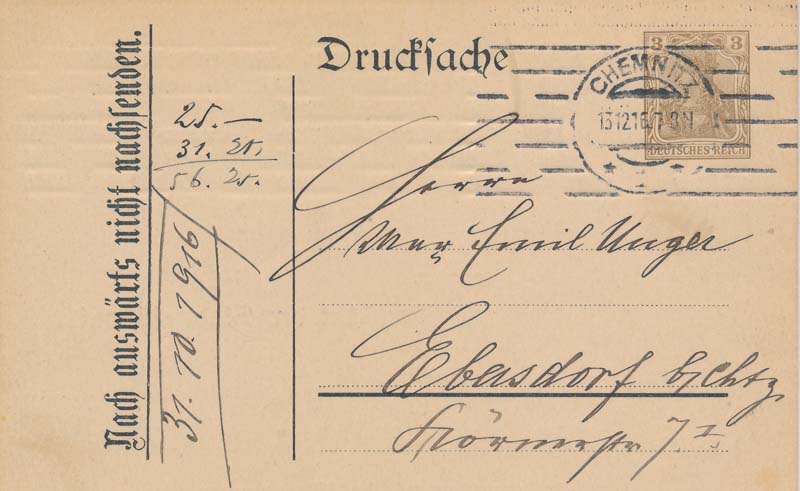 Drucksache
Nach auswärts nicht nachsenden.
25.-
31. 20.
56. 20.
31.10.1916
CHEMNITZ
13.12.16. 7-8 N
3 3
DEUTSCHES REICH
Herrn
Max Emil Unger
Ebersdorf b/Chtz
Körnerstr 7 I